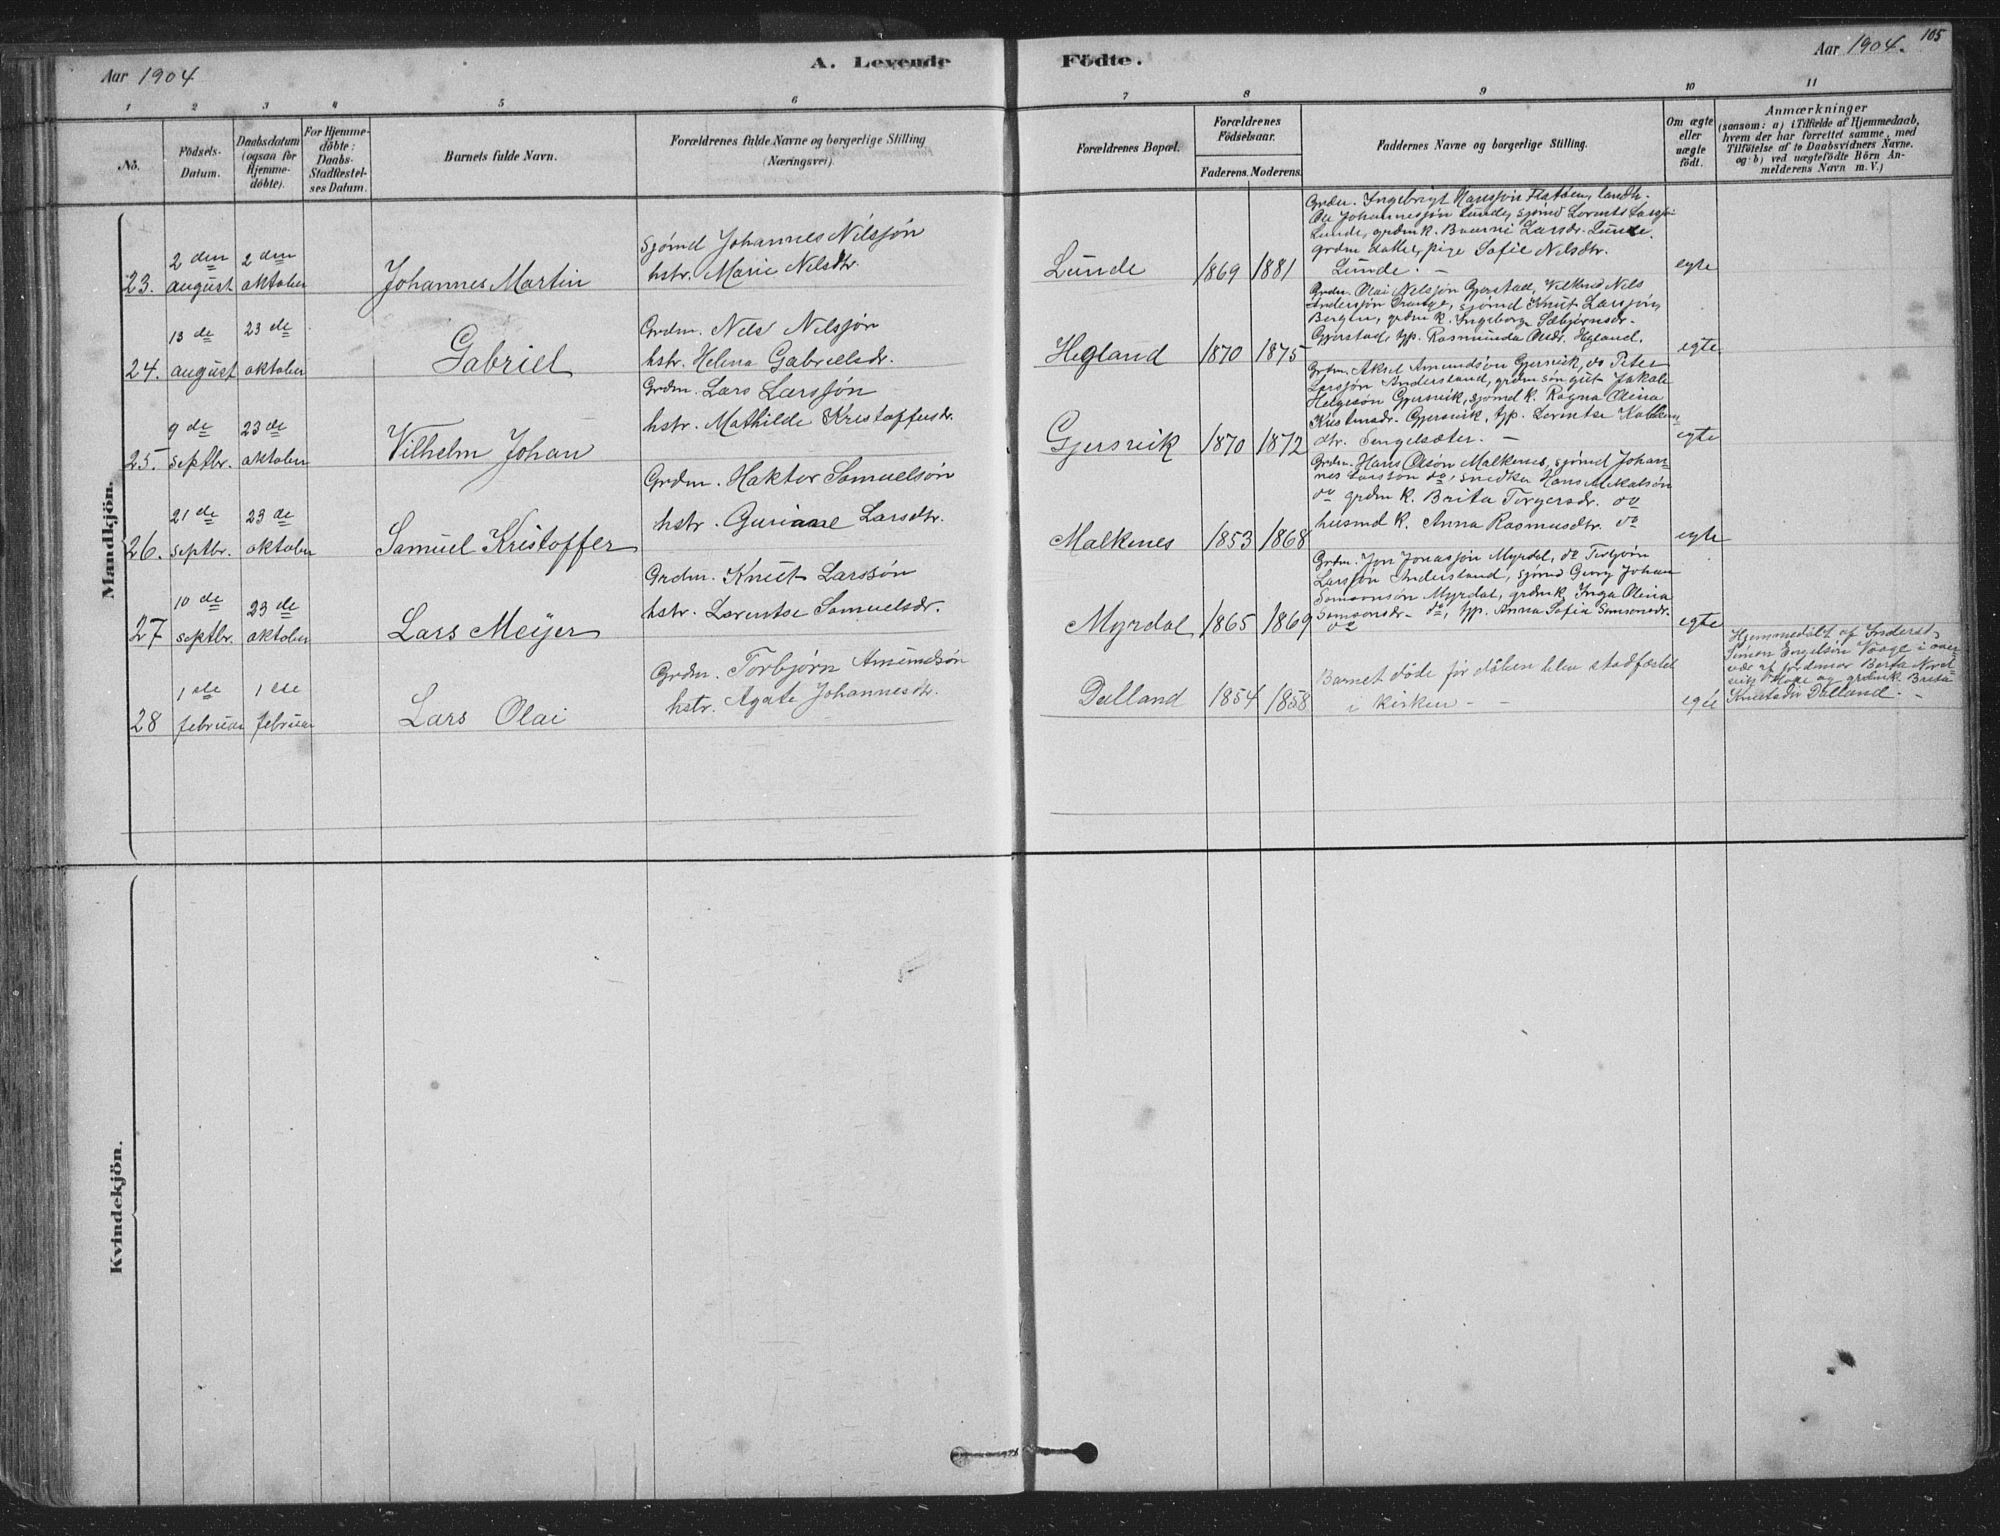 Aar 1904
A. Levende
Födte.
Aar 1904.
105
1 2 3 4 5 6 7 8 9 10 11
No.
Födsels-
Datum.
Daabsdatum
(ogsaa for
Hjemme-
döbte).
For Hjemme-
döbte:
Daabs-
Stadfæstel-
ses Datum.
Barnets fulde Navn.
Forældrenes fulde Navne og borgerlige Stilling
(Næringsvei).
Forældrenes Bopæl.
Forældrenes
Födselsaar.
Faderens. Moderens.
Faddernes Navne og borgerlige Stilling.
Om ægte
eller
uægte
födt.
Anmærkninger
(saasom: a) i Tilfælde af Hjemmedaab,
hvem der har forrettet samme, med
Tilföielse af to Daabsvidners Navne.
og b) ved uægtefödte Börn An-
melderens Navn m. V.)
Mandkjön.
23.
2 den
august
2 den
oktober
Johannes Martin
Sjømd Johannes Nilsjøn
hstr. Marie Nilsdtr.
Lunde
1869 1881
Grdm. Ingebrigt Hansjøn
Ole Johannesjøn Lunde, sjømd Lorents
Lunde, grdm k. Larsdr. Lunde.
grdm datter, pige Sofie Nilsdtr.
Lunde. –
egte
24.
13 de
august
23 de
oktober
Gabriel
Grdm. Nels Nilsjøn
hstr. Helena Gabrielsdr.
Hegland
1870 1875
Grdm. Olai Nelsjøn Gjerstad, Nils
Andersjøn Drange, sjømd Knut Larsjøn,
Bergen, grdm k. Ingeborg Sæbjørnsdr.
Gjerstad, tjp. Rasmunda Hegland.
egte
25.
9 de
septbr.
23 de
oktober
Vilhelm Johan
Grdm. Lars Larsjøn
hstr. Mathilde Kristoffersdr.
Gjersvik
1870 1872
Grdm. Aksel Amundsøn Gjersvik, do Peter
Larsjøn Anderstand, grdm søn gut Jakob
Helgesøn Gjersvik, sjømd k. Ragna Olina
Gjersvik, tjp. Lorentse
dtr. Sengelsæter. –
egte
26.
21 de
septbr.
23 de
oktober
Samuel Kristoffer
Grdm. Haktor Samuelsøn
hstr. Guriane Larsdtr.
Malkenes
1853 1868
Grdm. Hans Olsøn Malkenes, sjømd Johan-
nes Larsson do, snedker Hans
do grdm k. Brita Torgersdr. do
husmd k. Anna Rasmusdtr. do
egte
27
10 de
septbr.
23 de
oktober
Lars Meijer
Grdm. Knut Larssøn
hstr. Lorentse Samuelsdr.
Myrdal
1865 1869
Grdm. Jon Jonasjøn Myrdal, do Torbjørn
Larsjøn Anderstand, sjømd Georg Johan
Samsonsøn Myrdal, grdm k. Inga Olina
Samsonsdr. do, tjp. Anna Sofia Samsonsdr.
do
egte
28
1 ste
februar
1 ste
februar
Lars Olai
Grdm. Torbjørn Amundsøn
hstr. Agate Johannesdtr.
Dalland
1854 1858
Barnet døde før dåben blev stadfæstet
i kirken – –
egte
Hjemmedøbt af
Simon Engelsøn Vaage i over-
vær af jordemor Berta
Hope og grdm k. Brita
Knutsdtr Dalland. –
Kvindekjön.